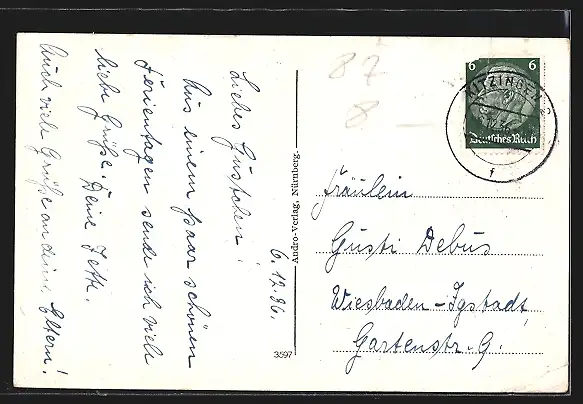 6.12.36.
Liebes Gustchen!
Aus einem paar schönen
Ferientagen sende ich viele
liebe Grüße. Deine Jette.
Auch viele Grüße an deine Eltern!
Andro-Verlag, Nürnberg.
3597
87
8 —
6 6
Deutsches Reich
KITZINGEN 2
f
Fräulein
Gusti Debus
Wiesbaden-Igstadt
Gartenstr. 9.